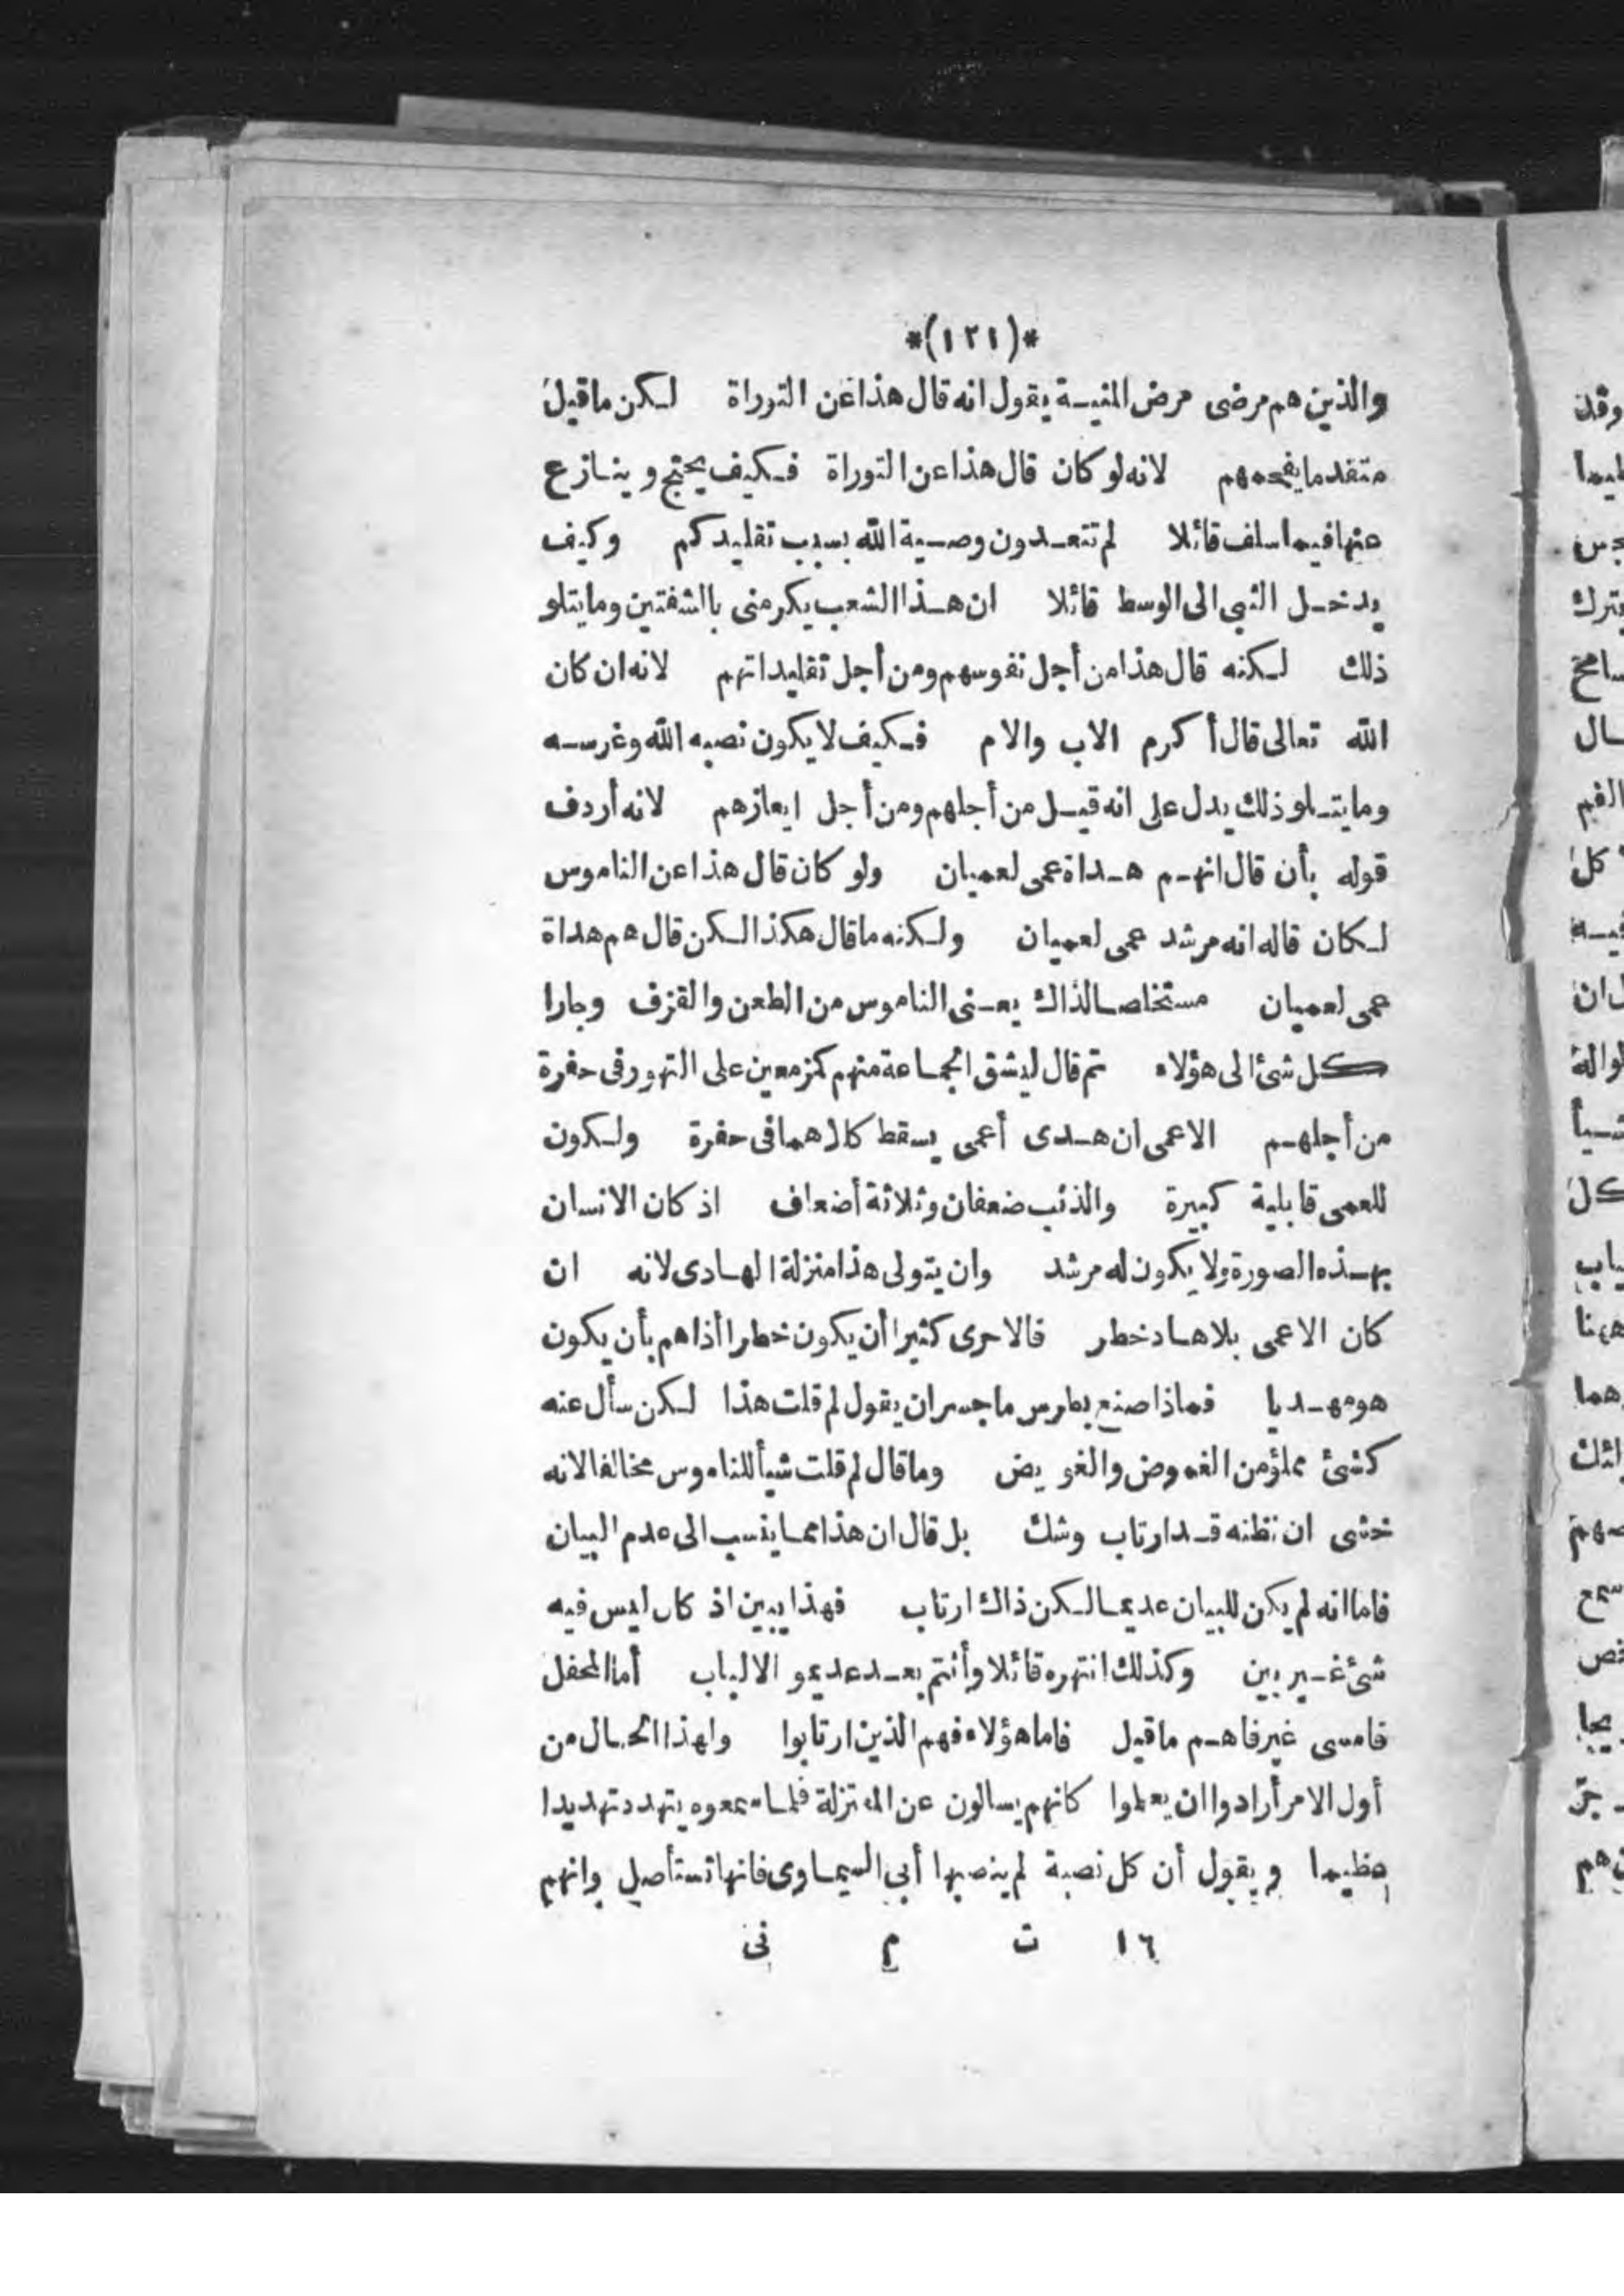 *(١٢١)*
والذين هم مرضى مرض المنية يقول انه قال هذا عن التوراة لكن ماقيل
متقدما يفحمهم لانه لو كان قال هذا عن التوراة فكيف يحتج وينازع
عنها فيما سلف قائلا لم تتعدون وصية الله بسبب تقليدكم وكيف
يدخل النبى الى الوسط قائلا ان هذا الشعب يكرمنى باالشفتين وما يتلو
ذلك لكنه قال هذا من أجل نفوسهم ومن أجل تقليداتهم لانه ان كان
الله تعالى قال أكرم الاب والام فكيف لا يكون نصبه الله وغرسه
وما يتلو ذلك يدل على انه قيل من أجلهم ومن أجل ايعازهم لانه أردف
قوله بأن قال انهم هداة عمى لعميان ولو كان قال هذا عن الناموس
لكان قاله انه مرشد عمى لعميان ولكنه ما قال هكذا لكن قال هم هداة
عمى لعميان مستخلصا لذاك يعنى الناموس من الطعن والقزف وجارا
كل شئ الى هؤلاء ثم قال ليشق الجماعة منهم كمزمعين على التهور فى حفرة
من أجلهم الاعمى ان هدى أعمى يسقط كلاهما فى حفرة ولكون
للعمى قابلية كبيرة والذئب ضعفان وثلاثة أضعاف اذ كان الانسان
بهذه الصورة ولا يكون له مرشد وان يتولى هذا منزلة الهادى لانه ان
كان الاعمى بلا هاد خطر فالاحرى كثيرا أن يكون خطرا أذاهم بأن يكون
هو مهديا فماذا صنع بطرس ما جسر ان يقول لم قلت هذا لكن سأل عنه
كشئ مملؤ من الغموض والغويض وما قال لم قلت شيأ للناموس مخالفا لانه
خشى ان نظنه قد ارتاب وشك بل قال ان هذا مما ينسب الى عدم البيان
فاما انه لم يكن للبيان عديما لكن ذاك ارتاب فهذا يبين اذ كان ليس فيه
شئ غير بين وكذلك انتهره قائلا وأنتم بعد عديمو الالباب أما المحفل
فامسى غير فاهم ما قيل فاما هؤلاء فهم الذين ارتابوا ولهذا الحال من
أول الامر أرادوا ان يعلموا كانهم يسالون عن المنزلة فلما سمعوه يتهدد تهديدا
عظيما ويقول أن كل نصبة لم ينصبها أبى السماوى فانها تستأصل وانهم
١٦ ت م نى